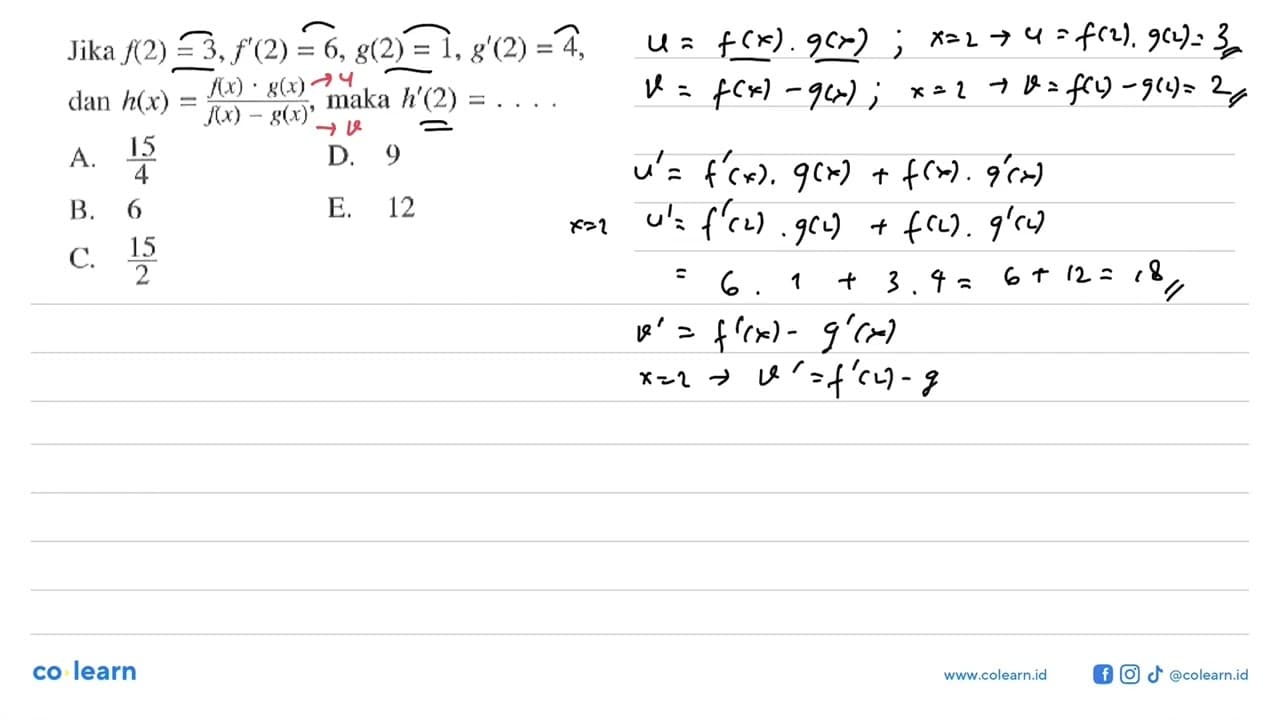 Jika f(2) = 3, f'(2) = 6, g(2) = 1, g'(2) = 4,
dan h(x) = f(x) · g(x) / f(x) – g(x), maka h'(2) = . . . .
→ u
→ v
A. 15/4
B. 6
C. 15/2
D. 9
E. 12
u = f(x) . g(x) ; x=2 → u = f(2). g(2) = 3
v = f(x) - g(x) ; x=2 → v = f(2) - g(2) = 2
u' = f'(x). g(x) + f(x). g'(x)
x=2 u' = f'(2) . g(2) + f(2). g'(2)
= 6 . 1 + 3 . 4 = 6 + 12 = 18
v' = f'(x) - g'(x)
x=2 → v' = f'(2) - g
co learn
www.colearn.id
@colearn.id